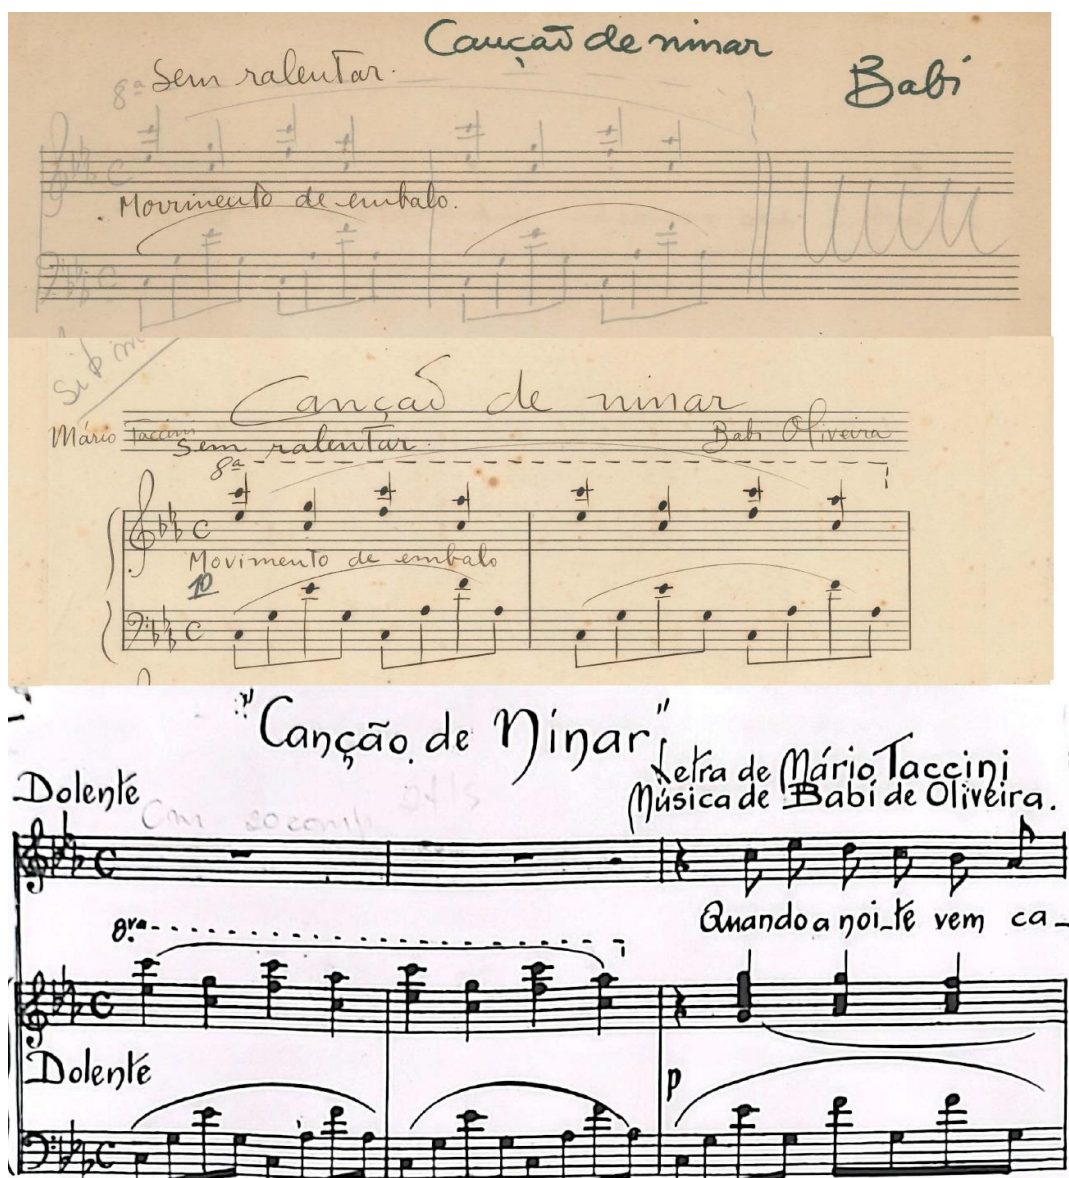 Canção de ninar
Babi
8ª Sem ralentar.
Movimento de embalo.
Canção de ninar
Mário Taccini
Babi Oliveira
Sem ralentar.
8ª
Movimento de embalo
"Canção de Ninar"
Letra de Mário Taccini
Música de Babi de Oliveira.
Dolente
Cm 20 comp.
Quando a noi_te vem ca_
8va
Dolente
p